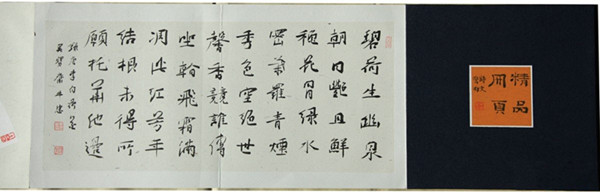 精品
冊頁
碧荷生幽泉
朝日艷且鮮
秋花冒綠水
密葉羅青煙
秀色空絕世
馨香競誰傳
坐看飛霜滿
凋此紅芳年
結根未得所
願托華池邊
李白詩